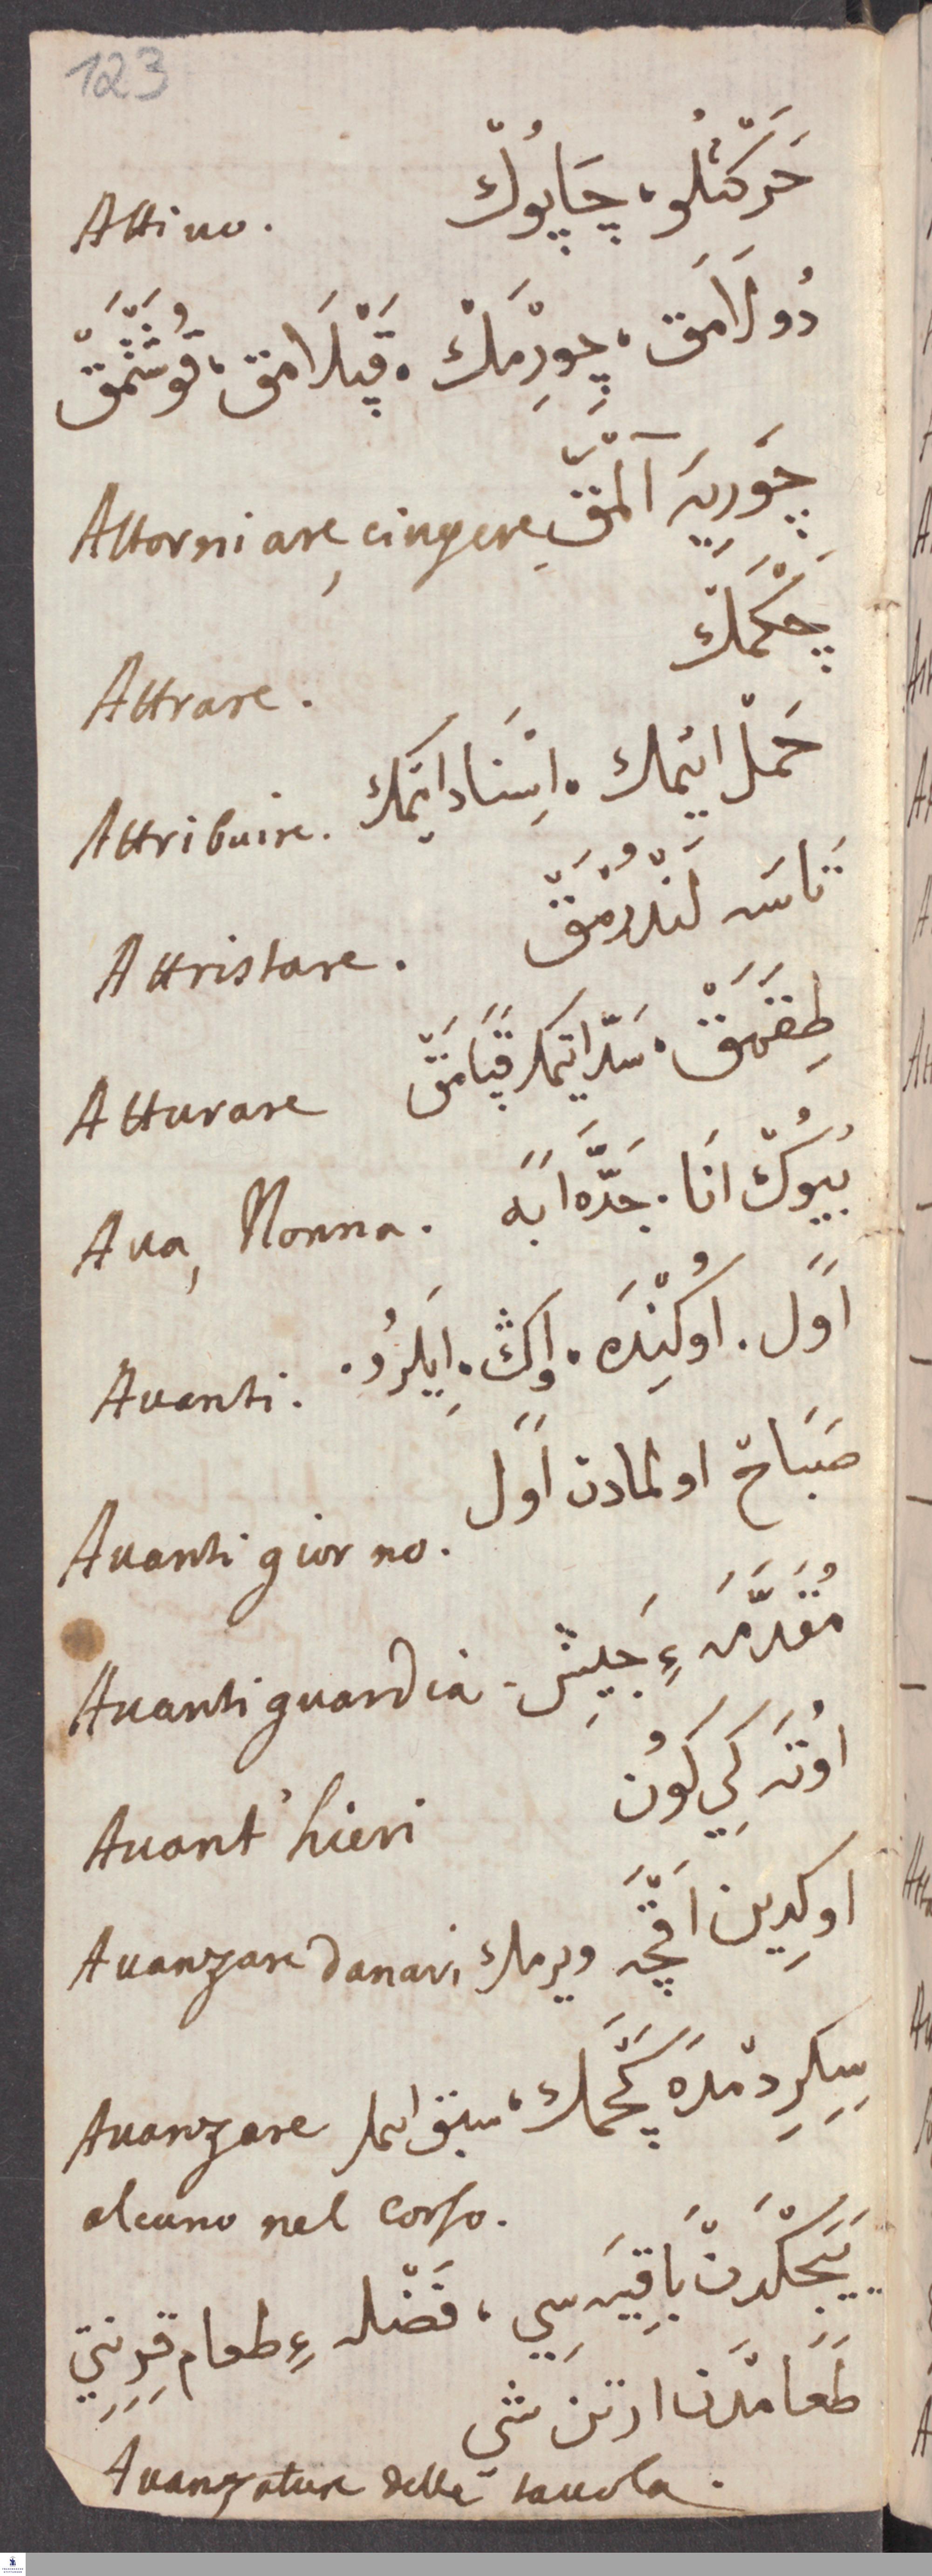 123
Attiuo. حَرَكَتْلُو، چَاپُوكْ
دُولَامَق، چِورِمَكْ، قَپْلَامَق، قُوشَتْمَقْ
Attorniare, cingere چَوِرِيَه آلْمَقْ
چَكْمَكْ
Attrare.
Attribuire. حَمْل ايتْمك، اِسْنَاد ايتمَك
Attristare. تَاسَه لَنْدُرْمَقْ
Atturare طِقَمَقْ، سَدّ ايتمك قَپَامَقْ
Aua, Nonna. بُيُوكْ انَا. جَدَّه ابَه
Auanti. اوَّل. اوُكِنْدَه. اوڭ. اِيلَرُو.
Auanti giorno. صَبَاح اولمادن اوَّل
Auanti guardia. مُقَدَّمَهءِ جَيِش
Auant' hieri اوُتَه كِي كوُن
Auanzare danari اوكِدِين اقْچَه ويرمك
Auanzare سِكِرِدمْدَه كَچْمَك، سبق ايتمك
alcuno nel corso.
يَيَجَكْدَنْ بَاقِيَه سِي، فَضْلهءِ طعام قِرِنتِي
طَعَامْدَن ارتن شي
Auanzature delle tauola.